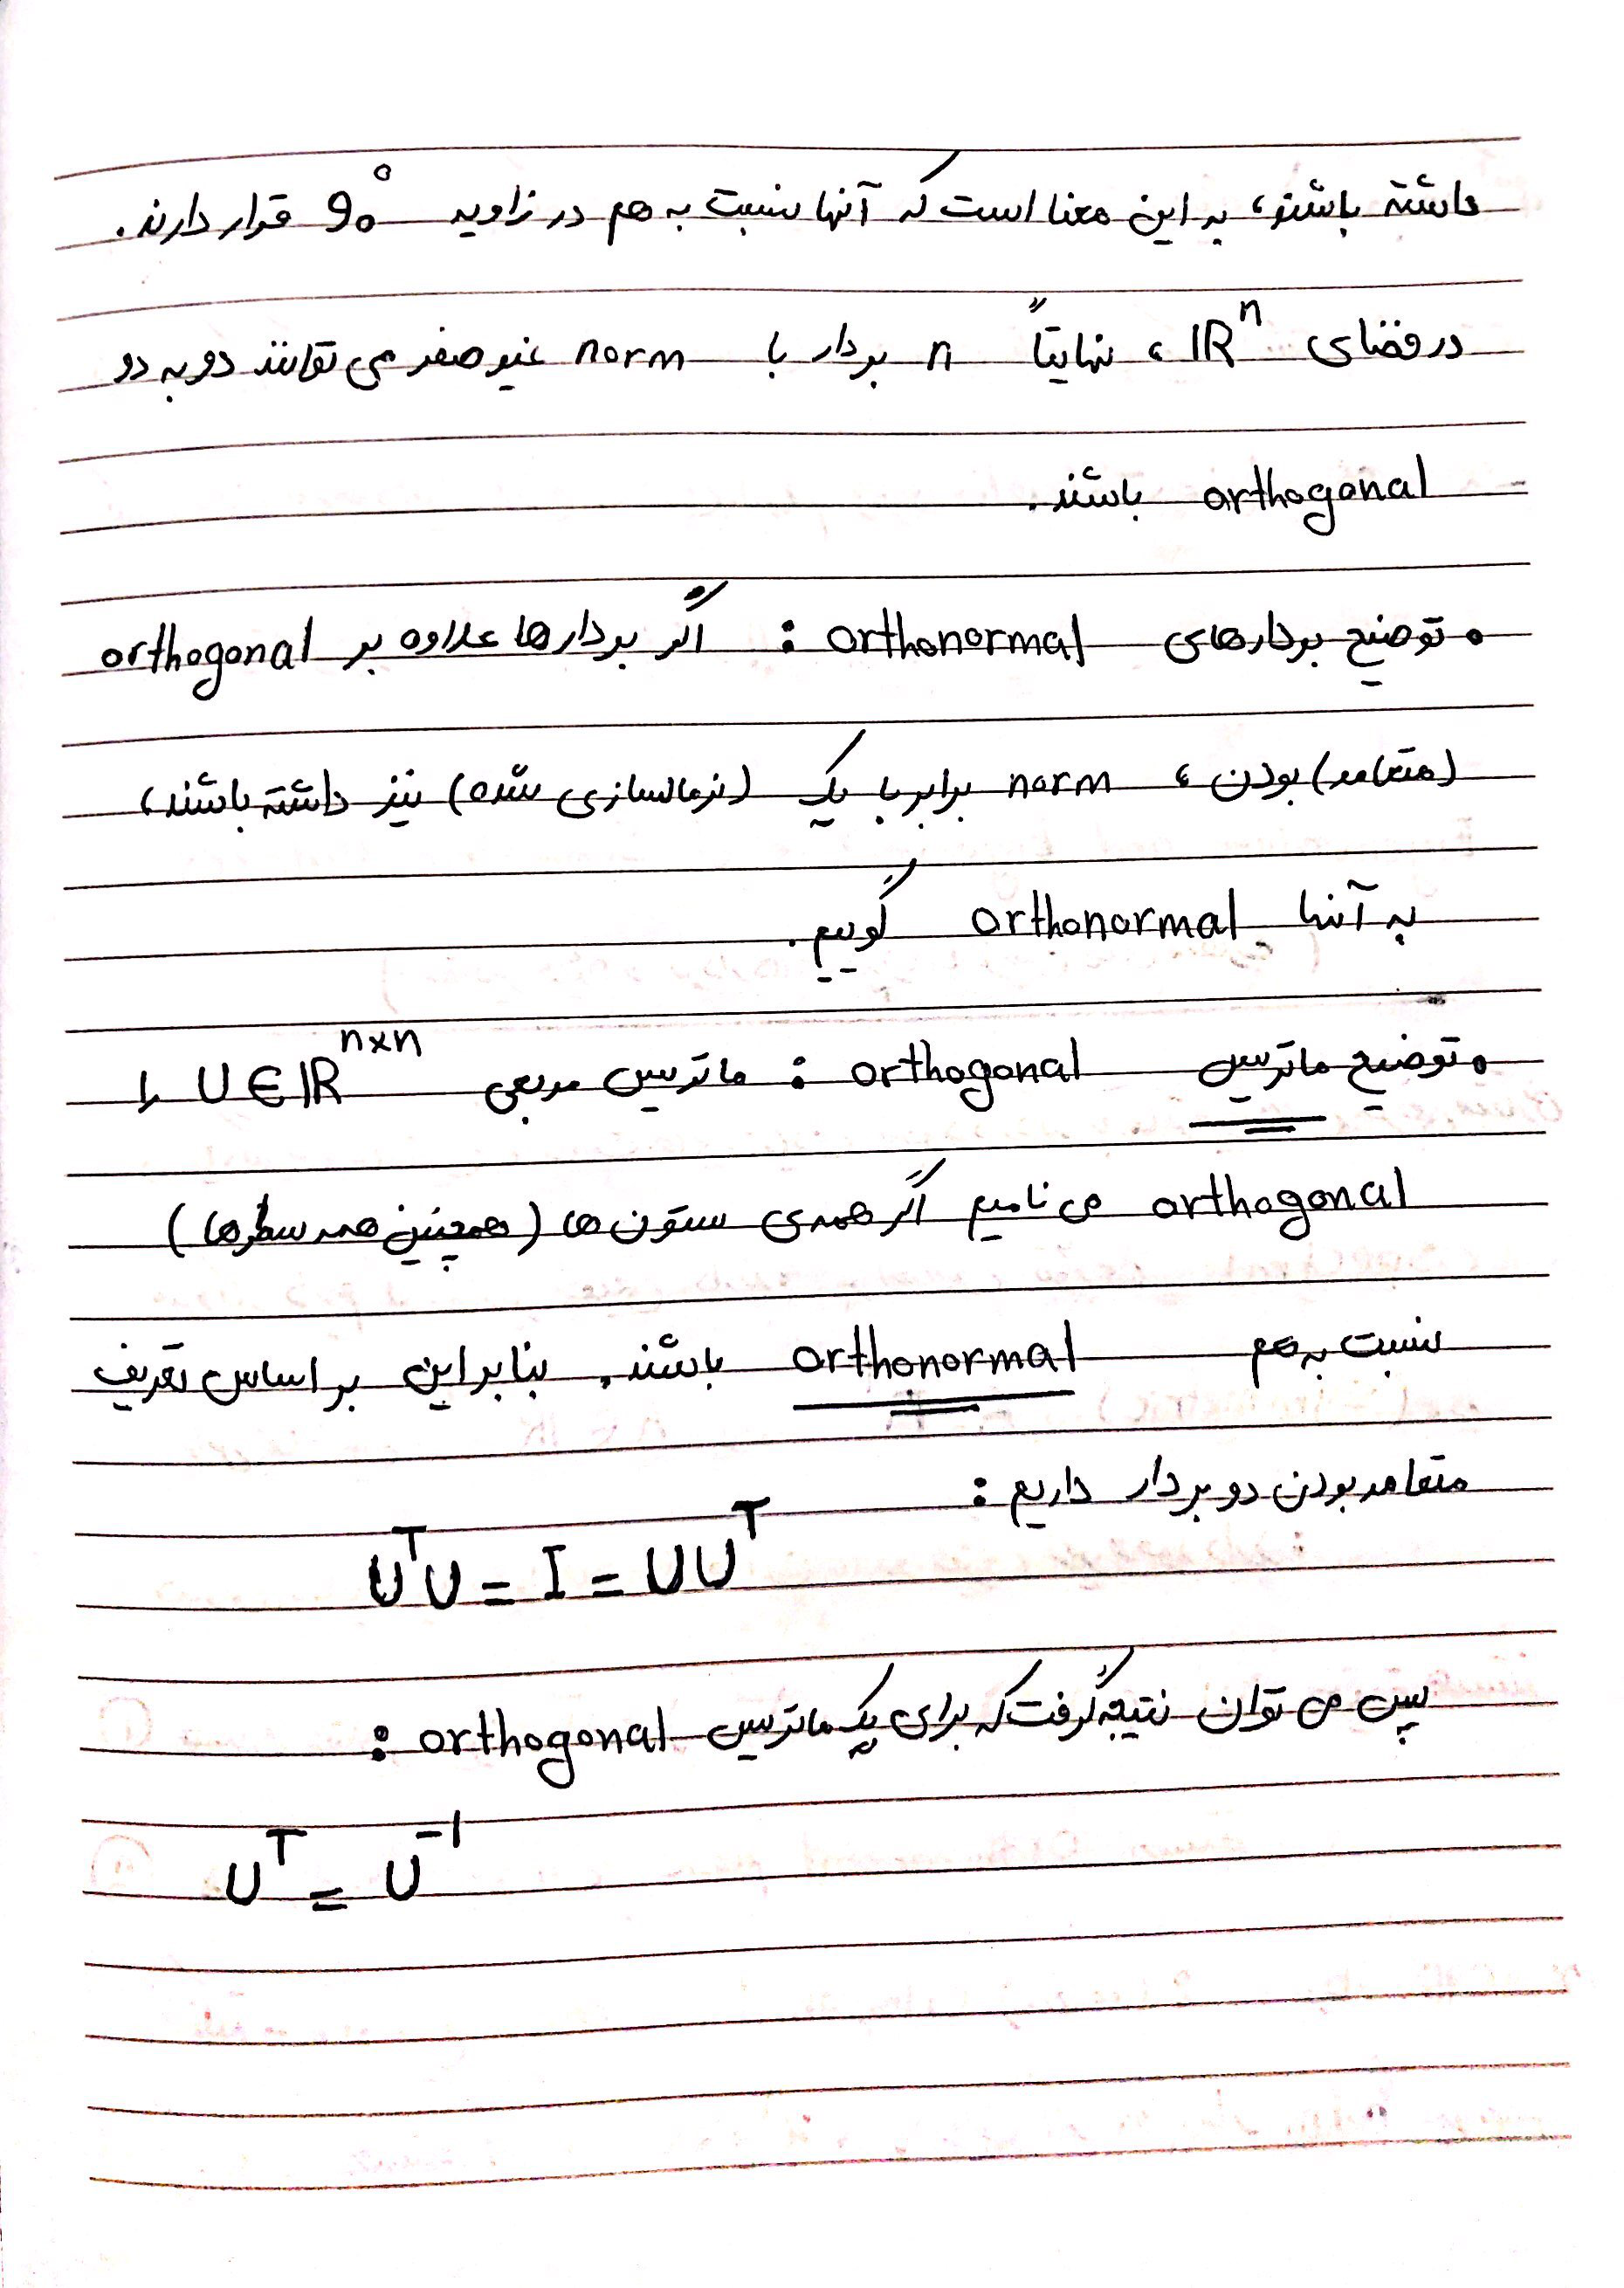 داشته باشند، به این معنا است که آنها نسبت به هم در زاویه 90° قرار دارند.
در فضای ℝⁿ، نهایتاً n بردار با norm غیر صفر می توانند دو به دو
orthogonal باشند.
• توضیح بردارهای orthonormal : اگر بردارها علاوه بر orthogonal
(متعامد) بودن، norm برابر با یک (نرمالسازی شده) نیز داشته باشند،
به آنها orthonormal گوییم.
• توضیح ماتریس orthogonal : ماتریس مربعی U ∈ ℝⁿˣⁿ را
orthogonal می نامیم اگر همه ی ستون ها (همچنین همه سطرها)
نسبت به هم orthonormal باشند. بنابراین بر اساس تعریف
متعامد بودن دو بردار داریم :
UᵀU = I = UUᵀ
پس می توان نتیجه گرفت که برای یک ماتریس orthogonal :
Uᵀ = U⁻¹